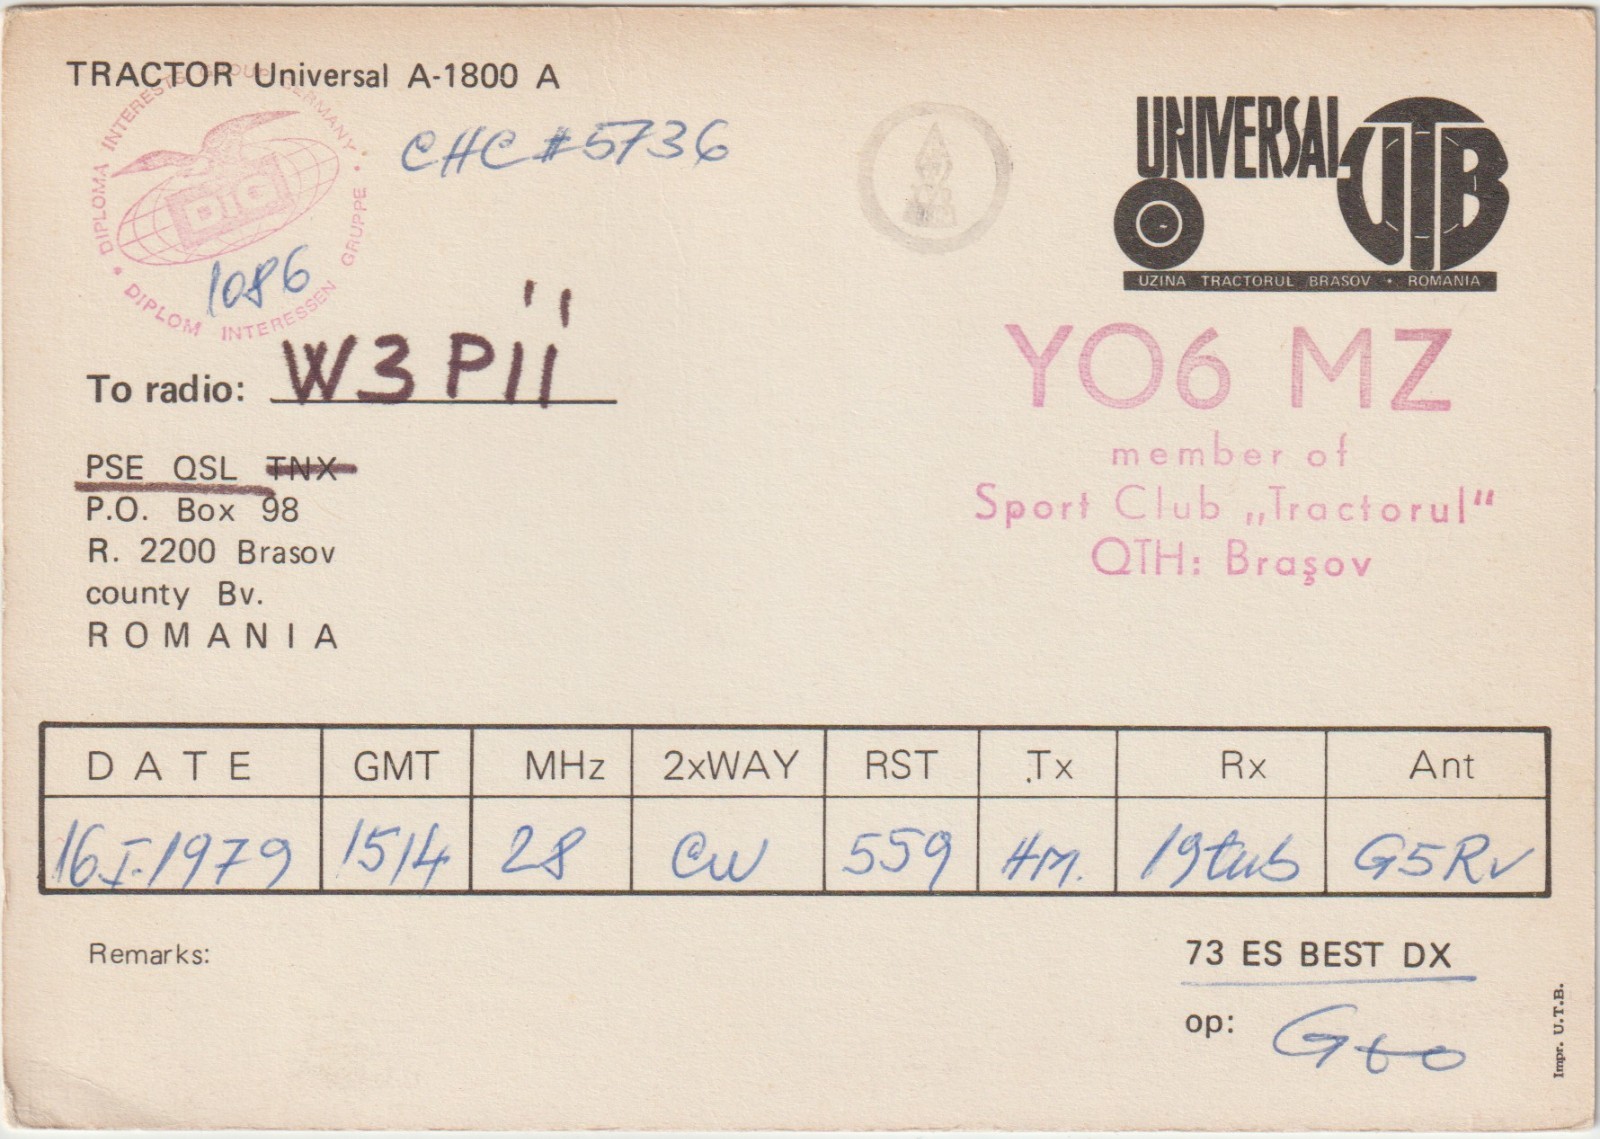 TRACTOR Universal A-1800 A
DIPLOMA INTERESTS GROUP GERMANY
DIG
DIPLOM INTERESSEN GRUPPE
1086
CHC #5736
UNIVERSAL UTB
UZINA TRACTORUL BRASOV • ROMANIA
To radio: W3PII
YO6 MZ
member of
Sport Club „Tractorul"
QTH: Brașov
PSE QSL TNX
P.O. Box 98
R. 2200 Brasov
county Bv.
ROMANIA
DATE GMT MHz 2xWAY RST Tx Rx Ant
16.I.1979 1514 28 CW 559 HM. 19tub G5Rv
Remarks:
73 ES BEST DX
op:
Impr. U.T.B.